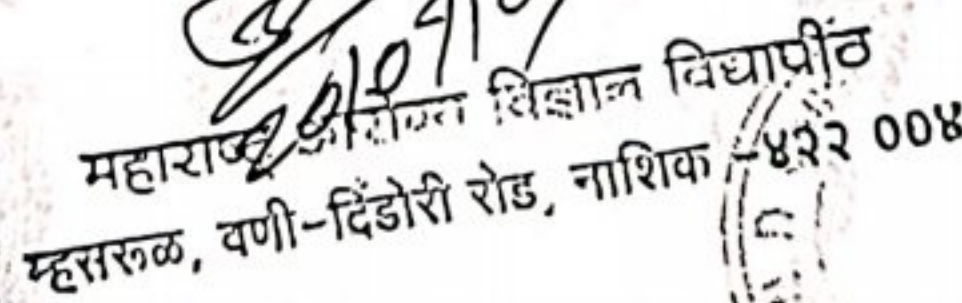 महाराष्ट्र आरोग्य विज्ञान विद्यापींठ
म्हसरूळ, वणी-दिंडोरी रोड, नाशिक -४२२ ००४